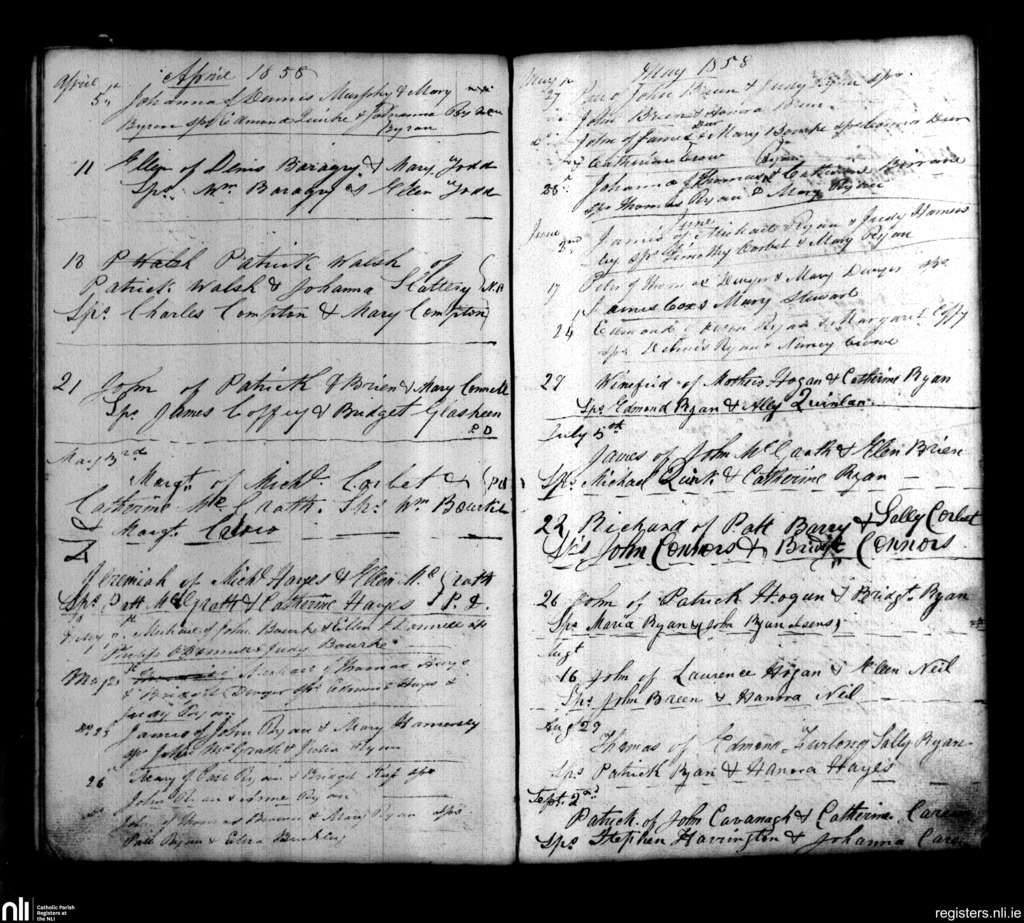 April 1858
April 5th
Johanna of Dennis Murphy & Mary
Byrne Sps Edmond Quirke & Johanna
Byran
11 Ellen of Denis Baragry & Mary Todd
Sps. Wm Baragry & Ellen Todd
18 Patrick Walsh of
Patrick Walsh & Johanna Slattery
Sps. Charles Compton & Mary Compton
21 John of Patrick O Brien & Mary Connell
Sps. James Coffey & Bridget Glasheen
P D
May 3rd
Margt. of Michl. Corbet & Pd
Catherine McGrath. Sps. Wm Bourke
& Margt.
Jeremiah of Michl Hayes & Ellen McGrath
Sps. Patt McGrath & Catherine Hayes P.
Michael of John Bourke & Ellen O Donnell Sps
Philip O Donnell & Judy Bourke
May of Thomas Hays
& Bridget Dwyer Sps Edmond Hayes &
Judy Ryan
25 James of John Ryan & Mary Hamersly
Sps John McGrath & Julia Ryan
26 Henry of Patt Ryan & Bridget Sps
John Ryan & Ryan
of Thomas & Mary Ryan Sps
Patt Ryan & Buckley
May 1858
May 27 of John Breen & Judy Sps.
John Breen & Hanora Breen
John of James & Mary Bourke Sps
& Catherine Crow
28 Johanna of Thomas Ryan & Catherine
Sps Thomas Ryan & Mary Ryan
June
June 2nd James of Michael Ryan & Judy Hamers
ly Sps Timothy Corbet & Mary Ryan
17 Peter of Thomas Dwyer & Mary Dwyer Sps
James Cox & Mary Steward
24 Edmond of Ryan & Margaret Coffy
Sps Denis Ryan & Nancy Crowe
27 Winefrid of Mathew Hogan & Catherine Ryan
Sps Edmond Ryan & Ally Quinlan
July 5th
James of John McGrath & Ellen Brien
Sps. Michael Quirk & Catherine Ryan
22 Richard of Patt Barry & Sally Corbet
Sps John Connors & Bridgt Connors
26 John of Patrick Hogan & Bridgt. Ryan
Sps Maria Ryan & (John Ryan
Augt
16 John of Laurence Hogan & Ellen Neil
Sps John Breen & Hanora Neil
Augt 29
Thomas of Edmond Furlong Sally Ryan
Sps Patrick Ryan & Hanora Hayes
Sept. 2nd
Patrick of John Cavanagh & Catherine
Sps Stephen Harrington & Johanna
nli
Catholic Parish
Registers at
the NLI
registers.nli.ie